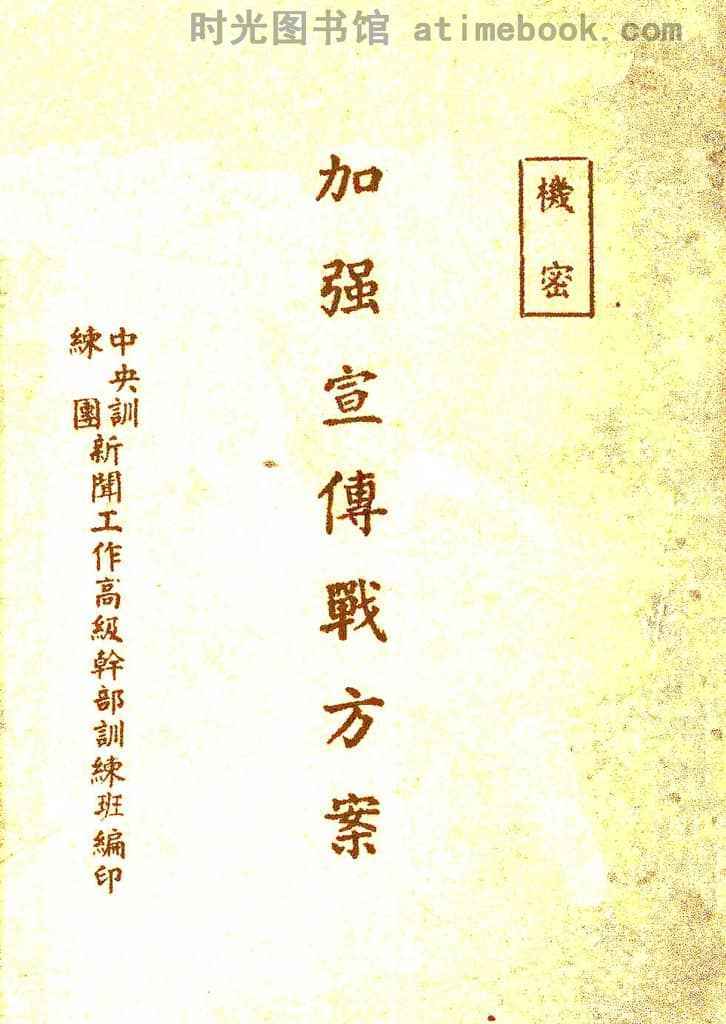 时光图书馆 atimebook.com
機密
加强宣傳戰方案
中央訓練團
新聞工作高級幹部訓練班編印